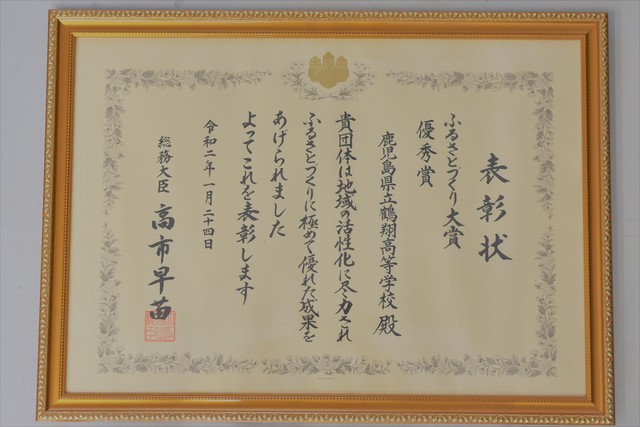 表彰状
ふるさとづくり大賞
優秀賞
鹿児島県立鶴翔高等学校 殿
貴団体は地域の活性化に尽力され
ふるさとづくりに極めて優れた成果を
あげられました
よってこれを表彰します
令和二年一月二十四日
総務大臣 高市早苗